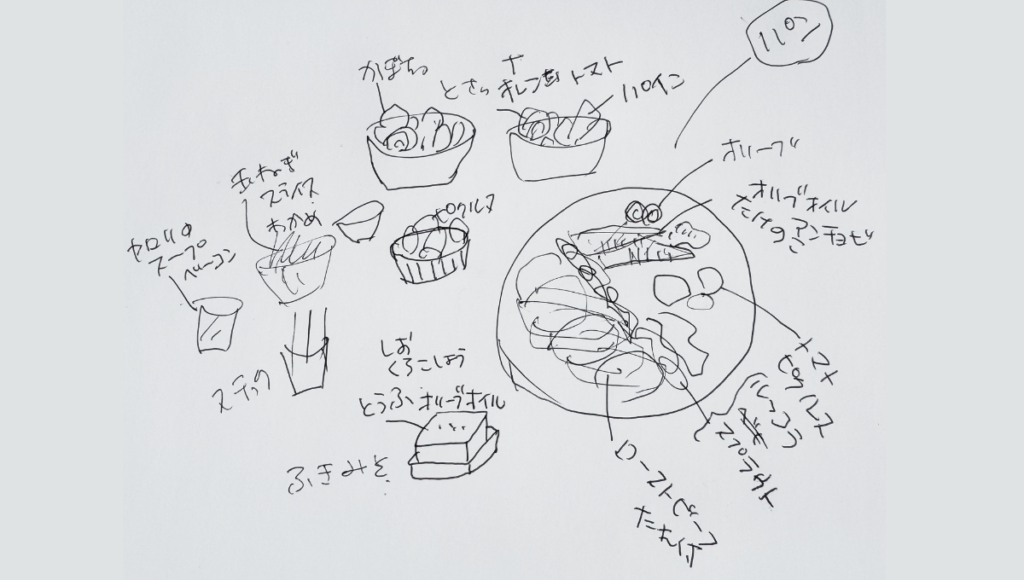 パン
かぼちゃ
トマト
オレンジ
パイン
オリーブ
オリーブオイル
たけのこ
アンチョビ
玉ねぎ
スライス
わかめ
ピクルス
スープ
ベーコン
スチック
しお
くろこしょう
とうふ オリーブオイル
ふきみそ
トマト
ピクルス
スプラウト
ローストビーフ
たれ付